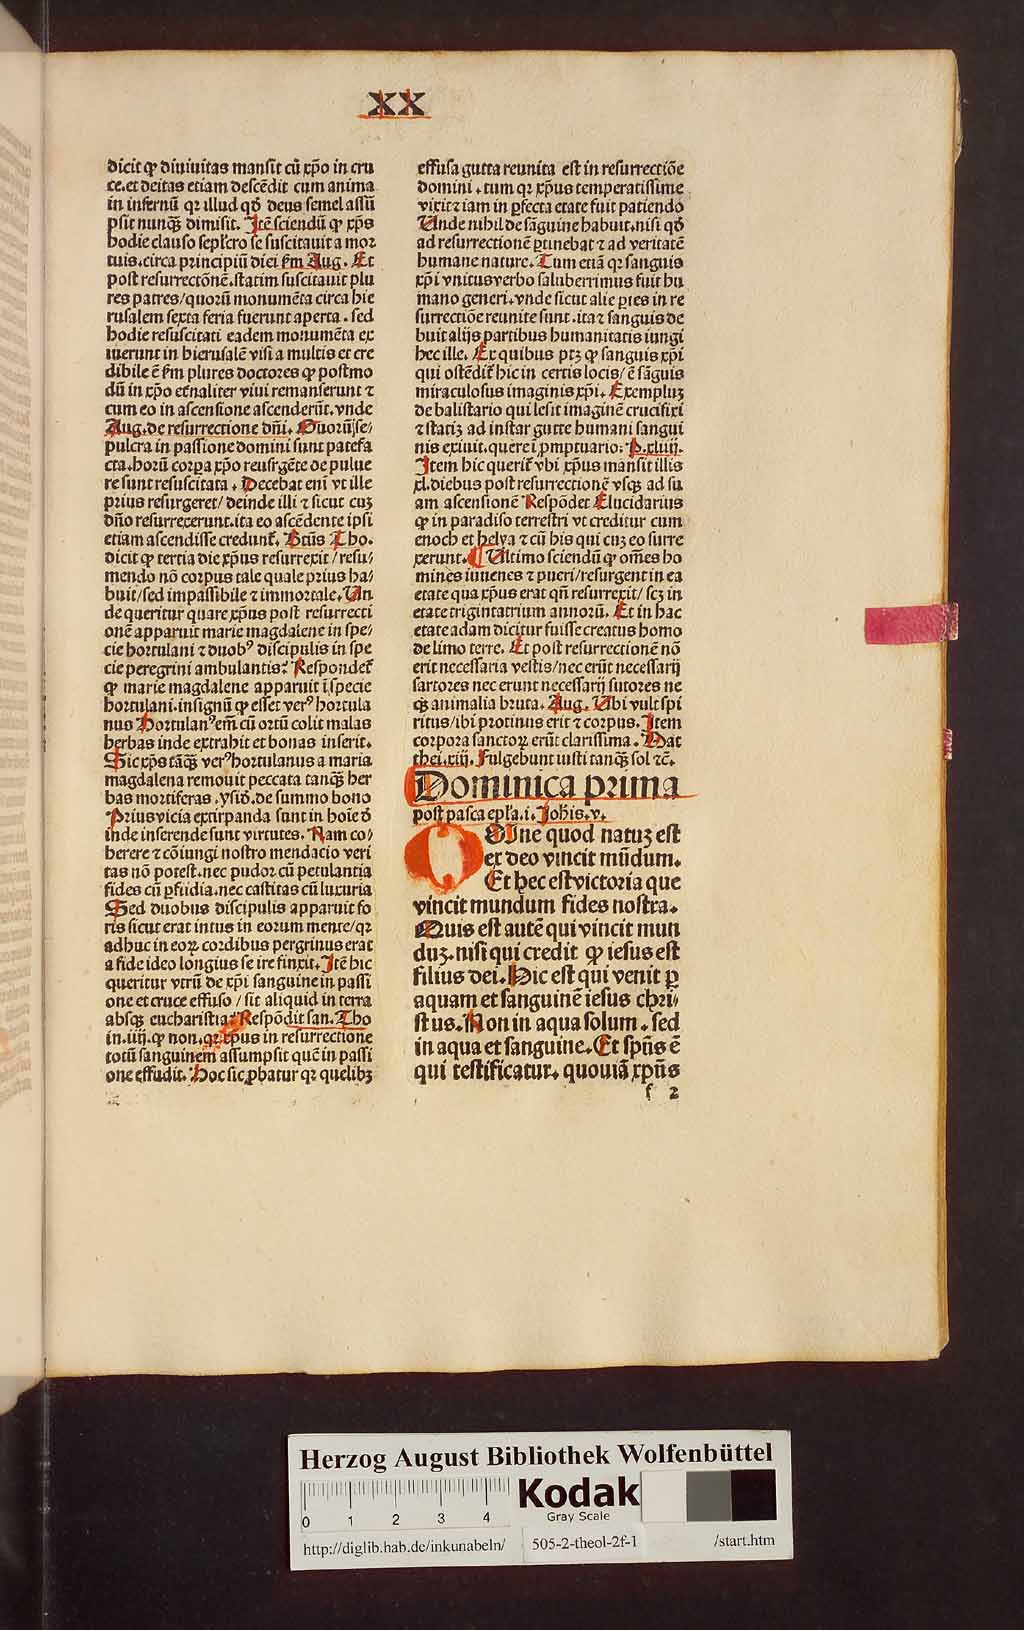 XX
dicit ꝙ diuiuitas mansit cū xp̄o in cru
ce.et deitas etiam descēdit cum anima
in infernū qꝛ illud qđ deus semel assū
psit nunqȝ dimisit. Jtē sciendū ꝙ xp̄s
hodie clauso sepłcro se suscitauit a mor
tuis.circa principiū diei ẜm Aug. Et
post resurrectōnē.statim suscitauit plu
res patres/quorū monumēta circa hie
rusalem sexta feria fuerunt aperta. sed
hodie resuscitati eadem monumēta ex
iuerunt in hierusalē visi a multis et cre
dibile ē ẜm plures doctores ꝙ postmo
dū in xp̄o et̄naliter viui remanserunt ⁊
cum eo in ascensione ascenderūt.vnde
Aug.de resurrectione dn̄i. Quorū se⸗
pulcra in passione domini sunt patefa
cta.horū corꝑa xp̄o reusrgēte de pulue
re sunt resuscitata. Decebat eni vt ille
prius resurgeret/deinde illi ⁊ sicut cuȝ
dn̄o resurrexerunt.ita eo ascēdente ipsi
etiam ascendisse credunt̄. Btūs Tho.
dicit ꝙ tertia die xp̄us resurrexit/resu⸗
mendo nō corpus tale quale prius ha⸗
buit/sed impassibile ⁊ immortale. Vn
de queritur quare xp̄us post resurrecti
onē apparuit marie magdalene in spe⸗
cie hortulani ⁊ duobꝰ discipulis in spe
cie peregrini ambulantis? Respondet̄
ꝙ marie magdalene apparuit ī specie
hortulani.insignū ꝙ esset verꝰ hortula
nus Hortulanꝰ em̄ cū ortū colit malas
herbas inde extrahit et bonas inserit.
Sic xp̄s tāqȝ verꝰ hortulanus a maria
magdalena remouit peccata tanqȝ her
bas mortiferas.ysið.de summo bono
Prius vicia extirpanda sunt in hoīe ð
inde inserende sunt virtutes. Nam co⸗
herere ⁊ cōiungi nostro mendacio veri
tas nō potest.nec pudor cū petulantia
fides cū ꝑfidia.nec castitas cū luxuria
Sed duobus discipulis apparuit fo
ris sicut erat intus in eorum mente/qꝛ
adhuc in eoꝝ cordibus pergrinus erat
a fide ideo longius se ire finxit. Jtē hic
queritur vtrū de xp̄i sanguine in passi
one et cruce effuso/sit aliquid in terra
absqȝ eucharistia? Respōdit san.Tho
in.iiij.ꝙ non.qꝛ xp̄us in resurrectione
totū sanguinem assumpsit quē in passi
one effudit. Hoc sic ꝓbatur qꝛ quelibȝ
effusa gutta reunita est in resurrectiōe
domini.tum qꝛ xp̄us temperatissime
vixit ⁊ iam in ꝑfecta etate fuit patiendo
Vnde nihil de sāguine habuit.nisi qđ
ad resurrectionē ꝑtinebat ⁊ ad veritatē
humane nature. Tum etiā qꝛ sanguis
xp̄i vnitus verbo saluberrimus fuit hu
mano generi.vnde sicut alie ꝑtes in re
surrectiōe reunite sunt.ita ⁊ sanguis de
buit alijs partibus humanitatis iungi
hec ille. Ex quibus ptȝ ꝙ sanguis xp̄i
qui ostēdit̄ hic in certis locis/ē sāguis
miraculosus imaginis xp̄i. Exempluȝ
de balistario qui lesit imaginē crucifixi
⁊ statiȝ ad instar gutte humani sangui
nis exiuit.quere ī ꝓmptuario: P.xliiij.
Jtem hic querit̄ vbi xp̄us mansit illis
xl.diebus post resurrectionē vsqȝ ad su
am ascensionē Respōdet Elucidarius
ꝙ in paradiso terrestri vt creditur cum
enoch et helya ⁊ cū his qui cuȝ eo surre
xerunt. ¶ Vltimo sciendū ꝙ om̄es ho
mines iuuenes ⁊ pueri/resurgent in ea
etate qua xp̄us erat qn̄ resurrexit/scȝ in
etate triginta trium annorū. Et in hac
etate adam dicitur fuisse creatus homo
de limo terre. Et post resurrectionē nō
erit necessaria vestis/nec erūt necessarij
sartores nec erunt necessarij sutores ne
qȝ animalia bruta. Aug. Vbi vult spi
ritus/ibi protinus erit ⁊ corpus. Jtem
corpora sanctoꝝ erūt clarissima. Mat
thei.xiij. Fulgebunt iusti tanqȝ sol ⁊c̄.
Dominica prima
post pasca epl̄a.i. Joh̄is.v.
OMne quod natuȝ est
ex deo vincit mūdum.
Et hec est victoria que
vincit mundum fides nostra.
Quis est autē qui vincit mun
duȝ.nisi qui credit ꝙ iesus est
filius dei. Hic est qui venit ꝑ
aquam et sanguinē iesus chri⸗
stus. Non in aqua solum. sed
in aqua et sanguine. Et sp̄us ē
qui testificatur. quoniā xp̄us
f 2
Herzog August Bibliothek Wolfenbüttel
0 1 2 3 4
Kodak
Gray Scale
http://diglib.hab.de/inkunabeln/ 505-2-theol-2f-1 /start.htm